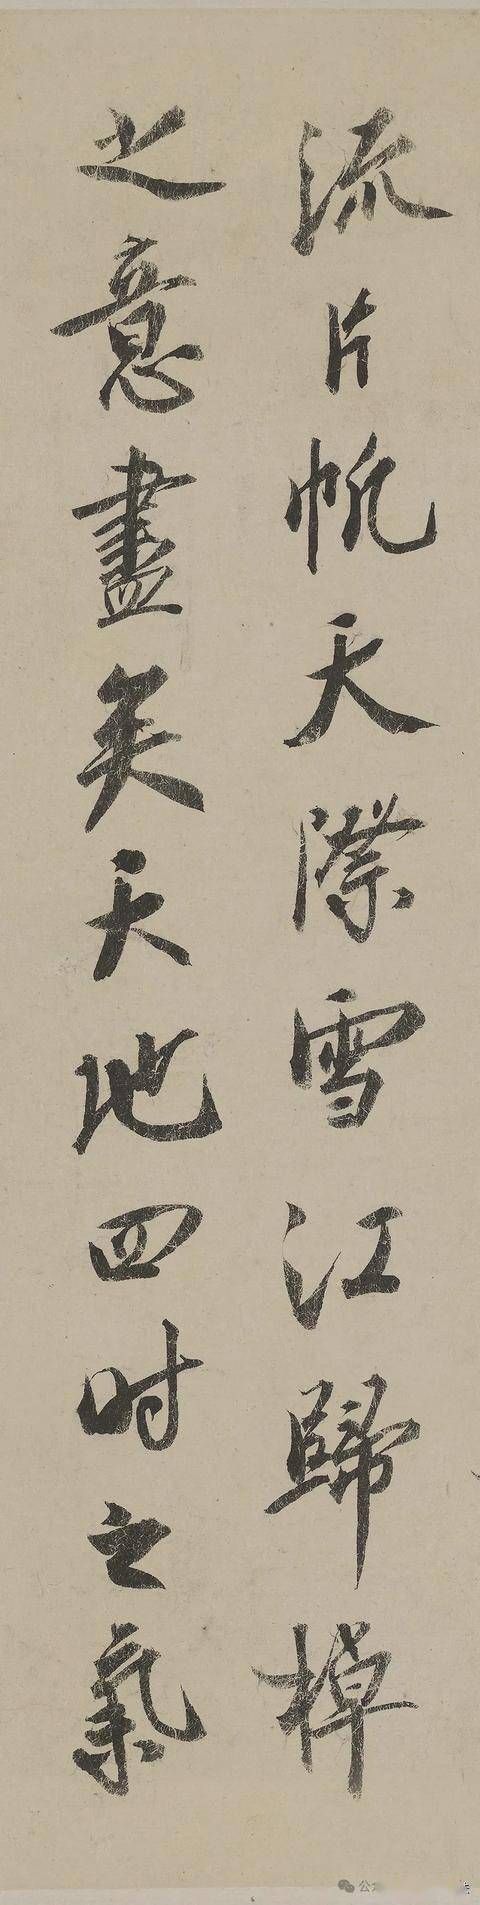 流片帆天際雪江歸棹
之意盡矣天地四時之氣
公